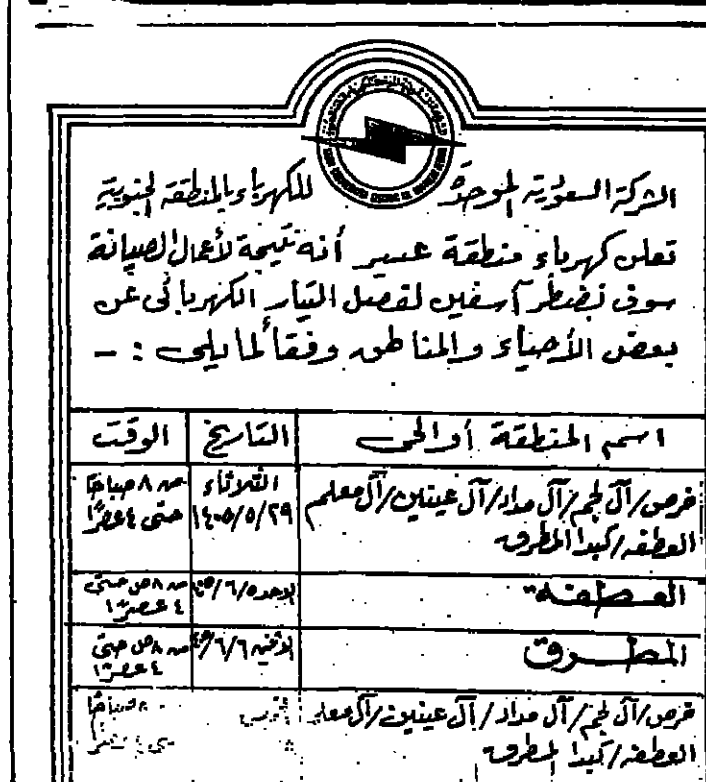 الشركة السعودية الموحدة للكهرباء بالمنطقة الجنوبية
تعلن كهرباء منطقة عسير أنه نتيجة لأعمال الصيانة
سوف نضطر آسفين لفصل التيار الكهربائي عن
بعض الأحياء والمناطق وفقاً لما يلي : -
اسم المنطقة أو الحي التاريخ الوقت
فرص/آل لجم/آل مداد/آل عينين/آل معلم الثلاثاء من ٨ صباحاً
العطفه/كيدا/المطرق ١٤٠٥/٥/٢٩ حتى ٤ عصراً
العـطفـة الاحد ٦/٥ من ٨ ص حتى
٤ عصراً
المطـرق الاثنين ٦/٦ من ٨ ص حتى
٤ عصراً
فرص/آل لجم/آل مداد/آل عينين/آل معلم صباحاً
العطفه/كيدا/المطرق